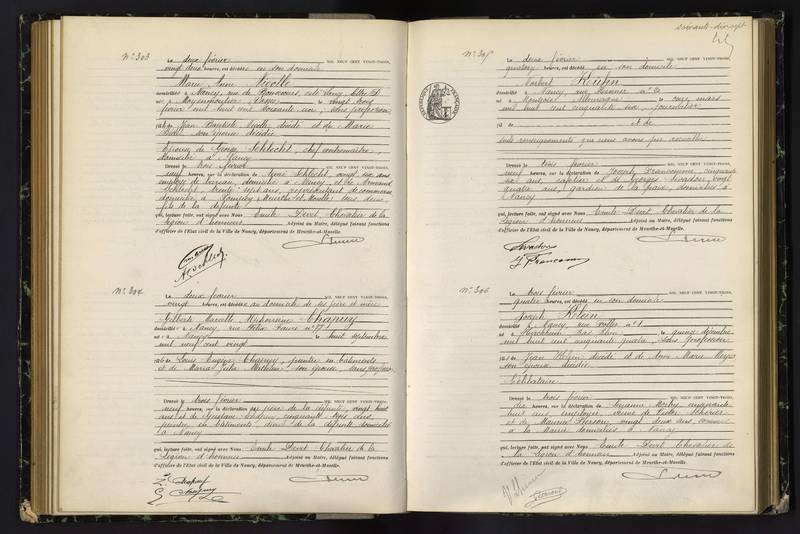 N° 303
Le deux février MIL NEUF CENT VINGT-TROIS,
vingt deux heures, est décédée en son domicile
Marie Anne Nicolle
domiciliée à Nancy, rue de
née à le vingt trois
février mil huit cent soixante, sans profession
fille de Jean Baptiste Nicolle décédé et de Marie
son épouse décédée
Epouse de George Schlecht, chef contremaître,
domicilié à Nancy
Dressé le trois février MIL NEUF CENT VINGT-TROIS,
neuf heures, sur la déclaration de Schlecht, vingt six ans
employé de bureau, domicilié à Nancy, et de Armand
Schlecht, trente sept ans, représentant de commerce
domicilié à Meurthe et Moselle tous deux
fils de la défunte
qui, lecture faite, ont signé avec Nous Emile Devit Chevalier de la
Légion d'honneur Adjoint au Maire, délégué faisant fonctions
d'officier de l'Etat civil de la Ville de Nancy, département de Meurthe-et-Moselle.
N° 304
Le deux février MIL NEUF CENT VINGT-TROIS,
vingt heures, est décédée au domicile de ses père et mère
Gilberte Marcelle Alphonsine Chapuy
domiciliée à Nancy rue Félix Faure n° 77
née à Nancy le huit septembre
mil neuf cent vingt
fille de Louis Eugène Chapuy, peintre en bâtiments
et de Maria Julie son épouse, sans profession
Dressé le trois février MIL NEUF CENT VINGT-TROIS,
neuf heures, sur la déclaration du père de la défunte, vingt huit
ans et de Gustave Chapuy, cinquante trois ans,
peintre en bâtiments, aïeul de la défunte domiciliés
à Nancy
qui, lecture faite, ont signé avec Nous Emile Devit Chevalier de la
Légion d'honneur Adjoint au Maire, délégué faisant fonctions
d'officier de l'Etat civil de la Ville de Nancy, département de Meurthe-et-Moselle.
L. Chapuy
G. Chapuy
soixante-dix-sept
N° 305
Le deux février MIL NEUF CENT VINGT-TROIS,
quatorze heures, est décédé en son domicile
Norbert Kuhn
domicilié à Nancy, rue n° 20
né à Allemagne le onze mars
mil huit cent cinquante six, journalier
fils de et de
seuls renseignements que nous avons pu recueillir
Dressé le trois février MIL NEUF CENT VINGT-TROIS,
neuf heures, sur la déclaration de Joseph Francomme, cinquante
six ans, et de Georges Livadon, vingt
quatre ans, gardien de la paix, domiciliés à
Nancy
qui, lecture faite, ont signé avec Nous Emile Devit Chevalier de la
Légion d'honneur Adjoint au Maire, délégué faisant fonctions
d'officier de l'Etat civil de la Ville de Nancy, département de Meurthe-et-Moselle.
N° 306
Le trois février MIL NEUF CENT VINGT-TROIS,
quatre heures, est décédé en son domicile
Joseph Klein
domicilié à Nancy, rue n° 1
né à Bas Rhin le quinze décembre
mil huit cent cinquante quatre, sans profession
fils de Jean Klein décédé et de Anne Marie
son épouse décédée
Célibataire
Dressé le trois février MIL NEUF CENT VINGT-TROIS,
dix heures, sur la déclaration de Suzanne cinquante
huit ans, employée veuve de Victor
et de Maurice vingt deux ans, commis
à la Mairie domiciliés à Nancy
qui, lecture faite, ont signé avec Nous Emile Devit Chevalier de
la Légion d'honneur Adjoint au Maire, délégué faisant fonctions
d'officier de l'Etat civil de la Ville de Nancy, département de Meurthe-et-Moselle.